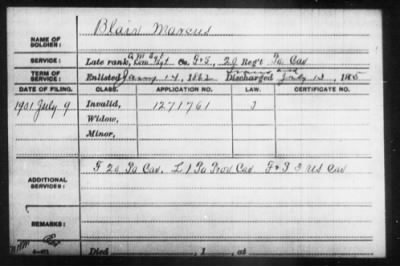 Blair Marcus
NAME OF SOLDIER:
SERVICE: Late rank, Com Sgt Co. F & S, 20 Reg't Pa Cav
TERM OF SERVICE: Enlisted 14, 1862 Discharged July 13, 1865
DATE OF FILING. CLASS. APPLICATION NO. LAW. CERTIFICATE NO.
1901 July 9 Invalid, 1271761
Widow,
Minor,
ADDITIONAL SERVICES: F 20 Pa Cav. L 1 Pa Prov Cav. F & S 3 US Cav
REMARKS:
Died , 1 , at